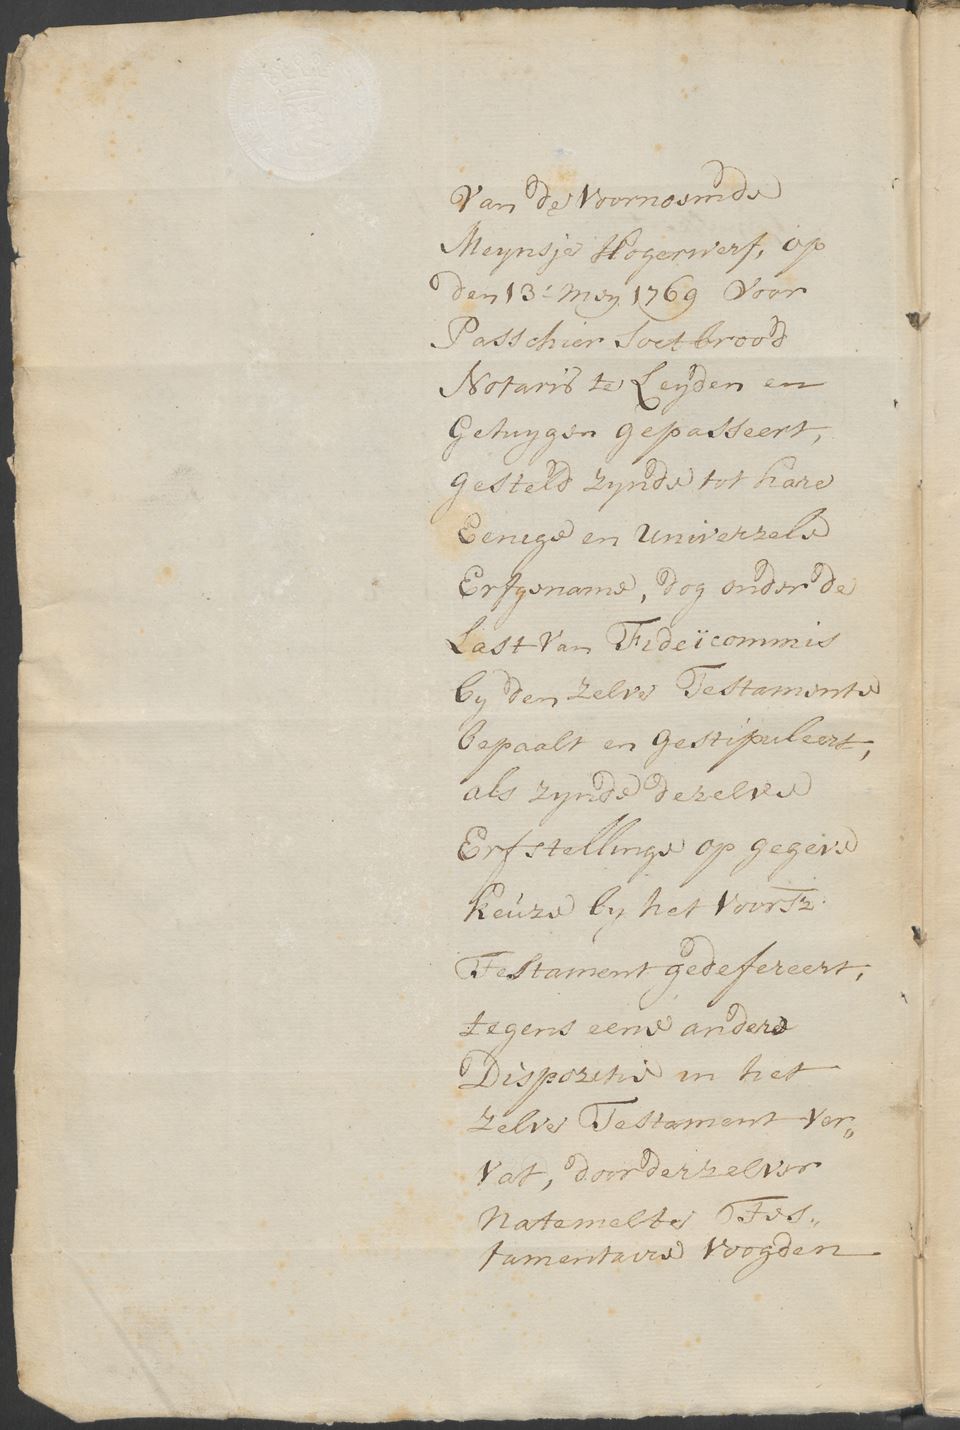 Van de Voornoemde
Meynsje Hogerwerf, op
den 13: Mey 1769 Voor
Passchier Soetbrood
Notaris te Leyden en
Getuygen gepasseert,
gesteld zynde tot hare
Eenige en Univerzele
Erfgename, dog onder de
Last Van Fideïcommis
by den zelve Testamente
bepaalt en gestipuleert,
als zynde dezelve
Erfstellinge op gegeve
keuze by het Voorsz.
Testament gedefereert,
tegens eene andere
Dispozitie in het
zelve Testament ver„
vat, door derzelver
natemelte Tes„
tamentaire Voogden